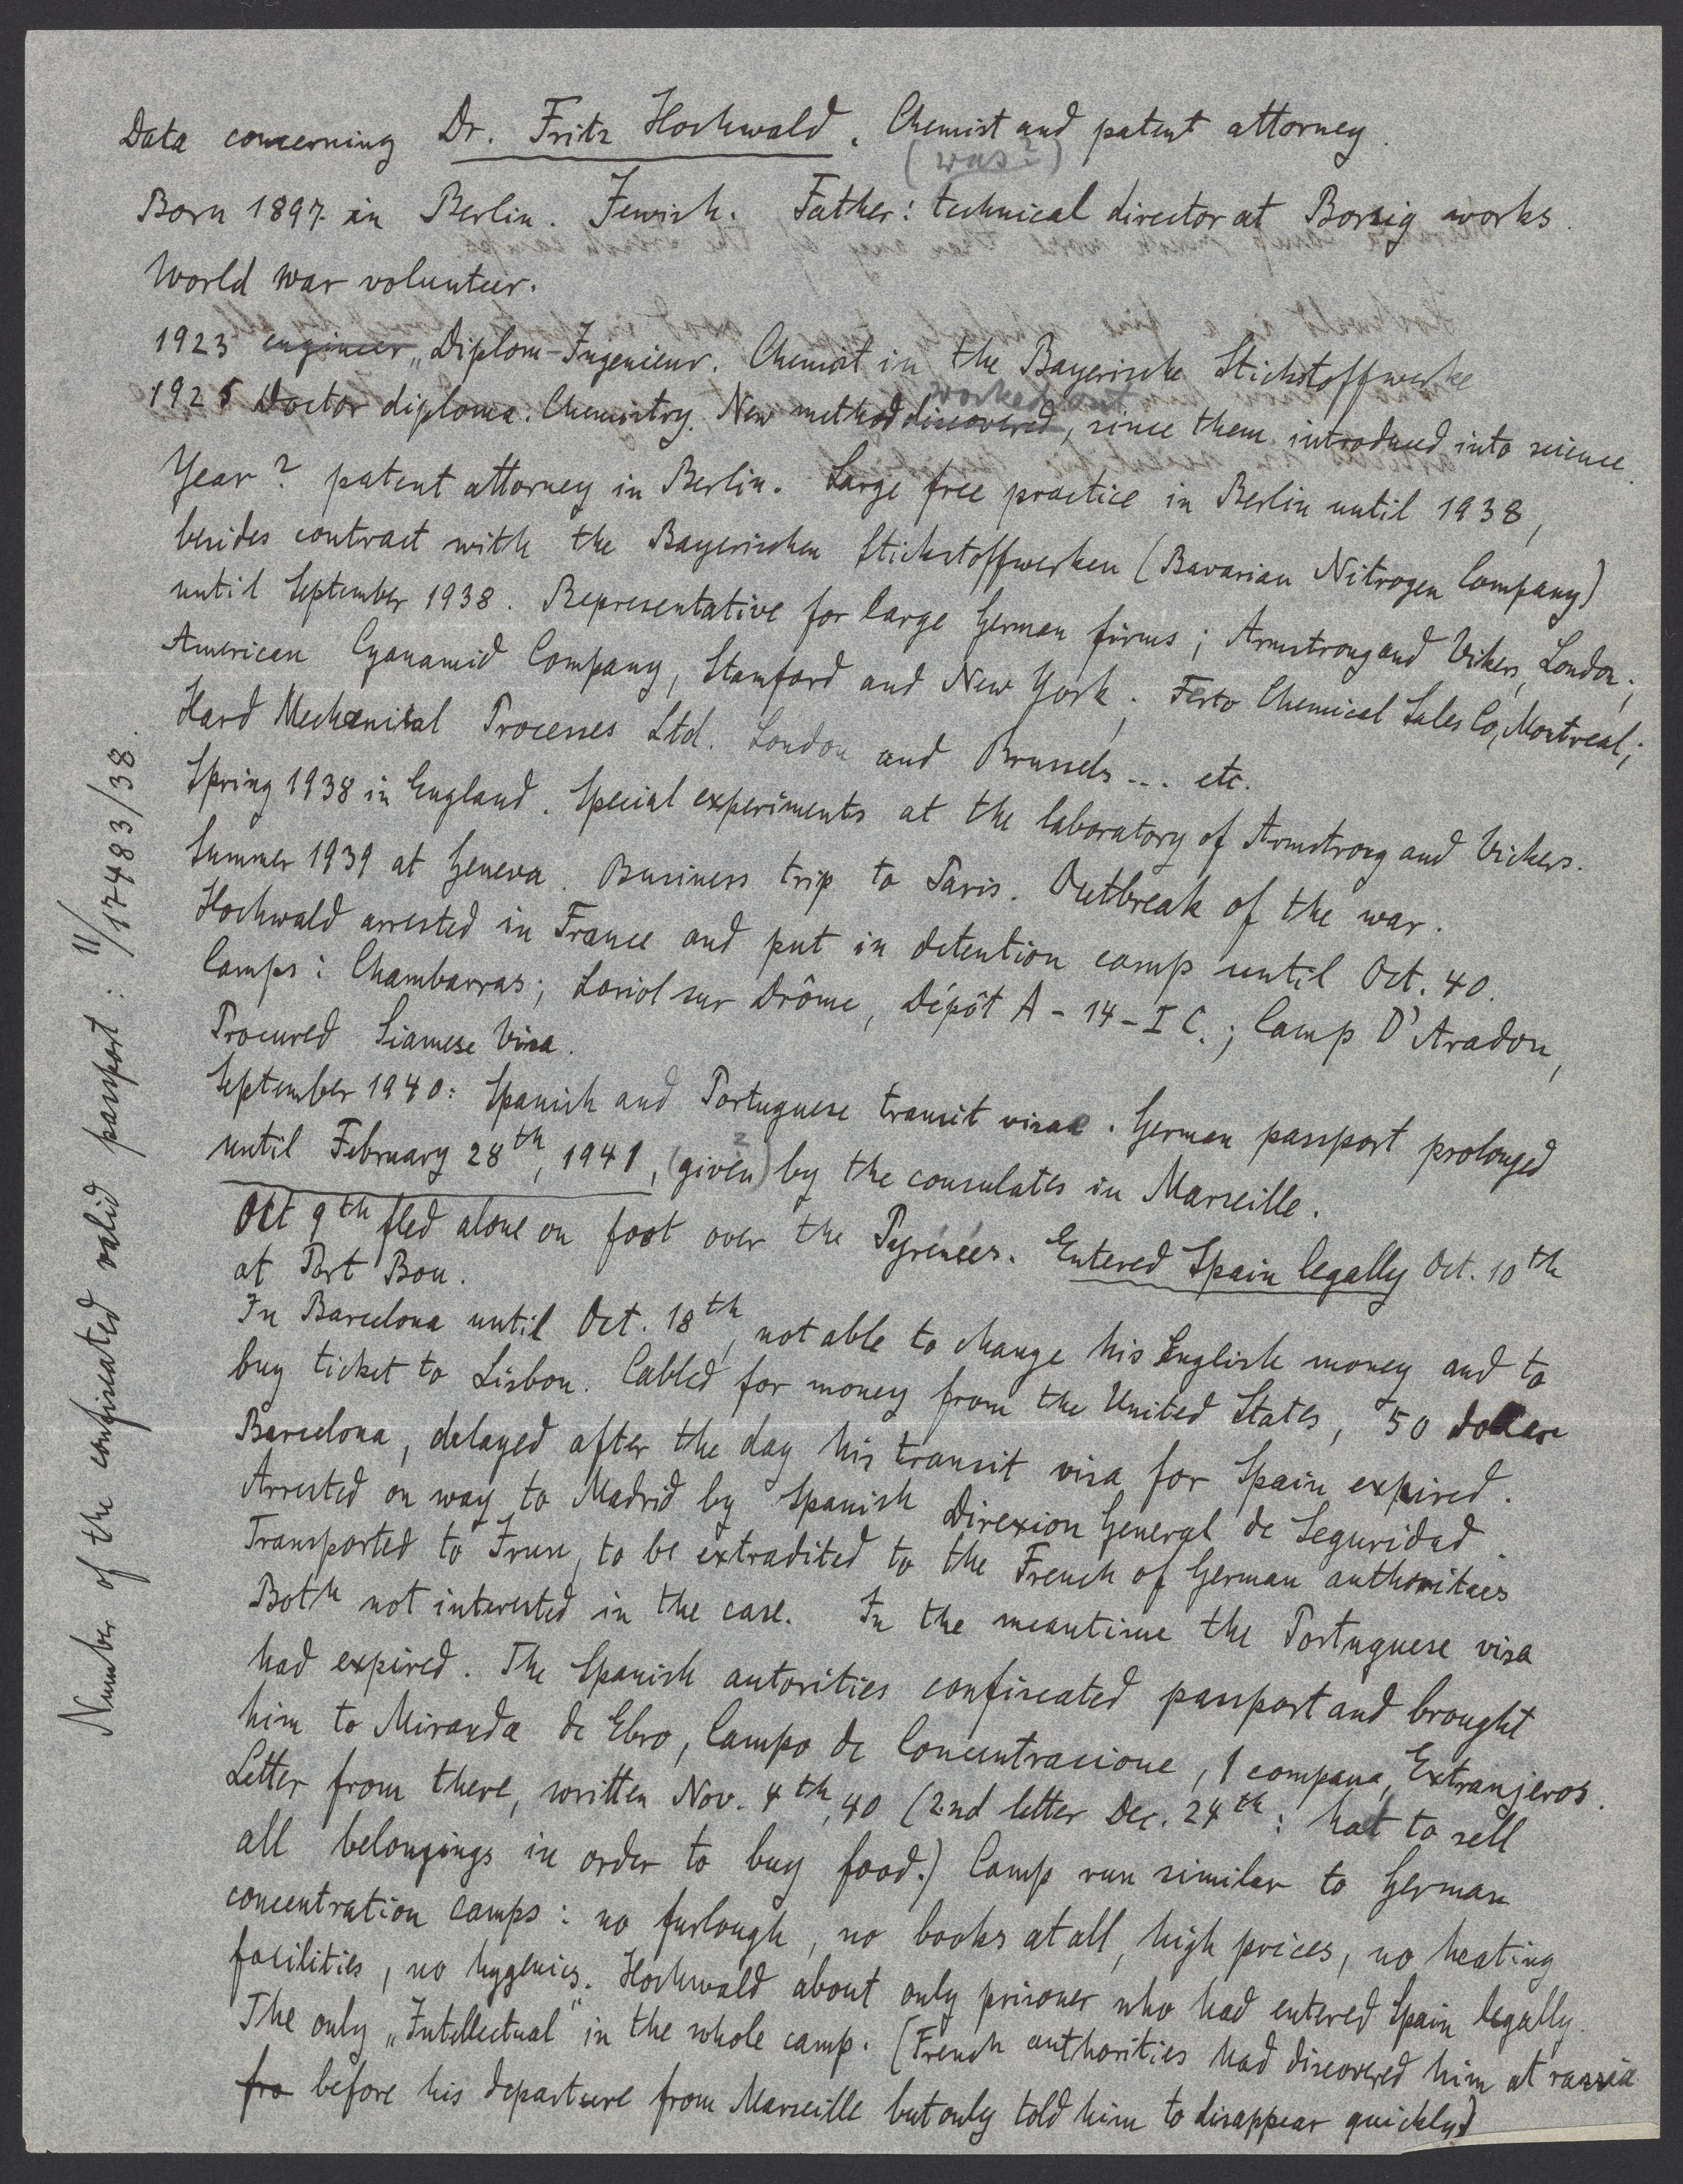 Data concerning Dr. Fritz Hochwald. Chemist and patent attorney.
(was?)
Born 1897 in Berlin. Jewish. Father: technical director at Borsig works.
World war volunteer.
1923 engineer „Diplom-Ingenieur. Chemist in the Bayerische Stickstoffwerke
worked out
1925 Doctor diploma. Chemistry. New method discovered, since them introduced into science.
Year? patent attorney in Berlin. Large free practice in Berlin until 1938,
besides contract with the Bayerischen Stickstoffwerken (Bavarian Nitrogen Company)
until September 1938. Representative for large German firms; Armstrong and Vikers, London;
American Cyanamid Company, Stamford and New York. Ferto Chemical Sales Co, Montreal;
Hard Mechanical Processes Ltd. London and Brussels... etc.
Spring 1938 in England. Special experiments at the laboratory of Armstrong and Vickers.
Summer 1939 at Geneva. Business trip to Paris. Outbreak of the war.
Hochwald arrested in France and put in detention camp until Oct. 40.
Camps: Chambarras; Loriol sur Drôme, Dépôt A-14-I C.; Camp D'Aradon,
Procured Siamese Visa.
September 1940: Spanish and Portuguese transit visae. German passport prolonged
until February 28th, 1941, (given) by the consulates in Marseille.
Oct 9th fled alone on foot over the Pyrénées. Entered Spain legally Oct. 10th
at Port Bou.
In Barcelona until Oct. 18th, not able to change his English money and to
buy ticket to Lisbon. Cabled for money from the United States, 50 dollars
Barcelona, delayed after the day his transit visa for Spain expired.
Arrested on way to Madrid by Spanish Direxion General de Seguridad.
Transported to Irun, to be extradited to the French of German authorities
Both not interested in the case. In the meantime the Portuguese visa
had expired. The Spanish autorities confiscated passport and brought
him to Miranda de Ebro, Campo de Concentracione, 1 compana, Extranjeros.
Letter from there, written Nov. 4th, 40 (2nd letter Dec. 24th: hat to sell
all belongings in order to buy food.) Camp run similar to German
concentration camps: no furlough, no books at all, high prices, no heating
facilities, no hygenics. Hochwald about only prisoner who had entered Spain legally.
The only „Intellectual" in the whole camp. (French authorities had discovered him at razzia
fro before his departure from Marseille but only told him to disappear quickly)
Number of the confiscated valid passport: II/17483/38.